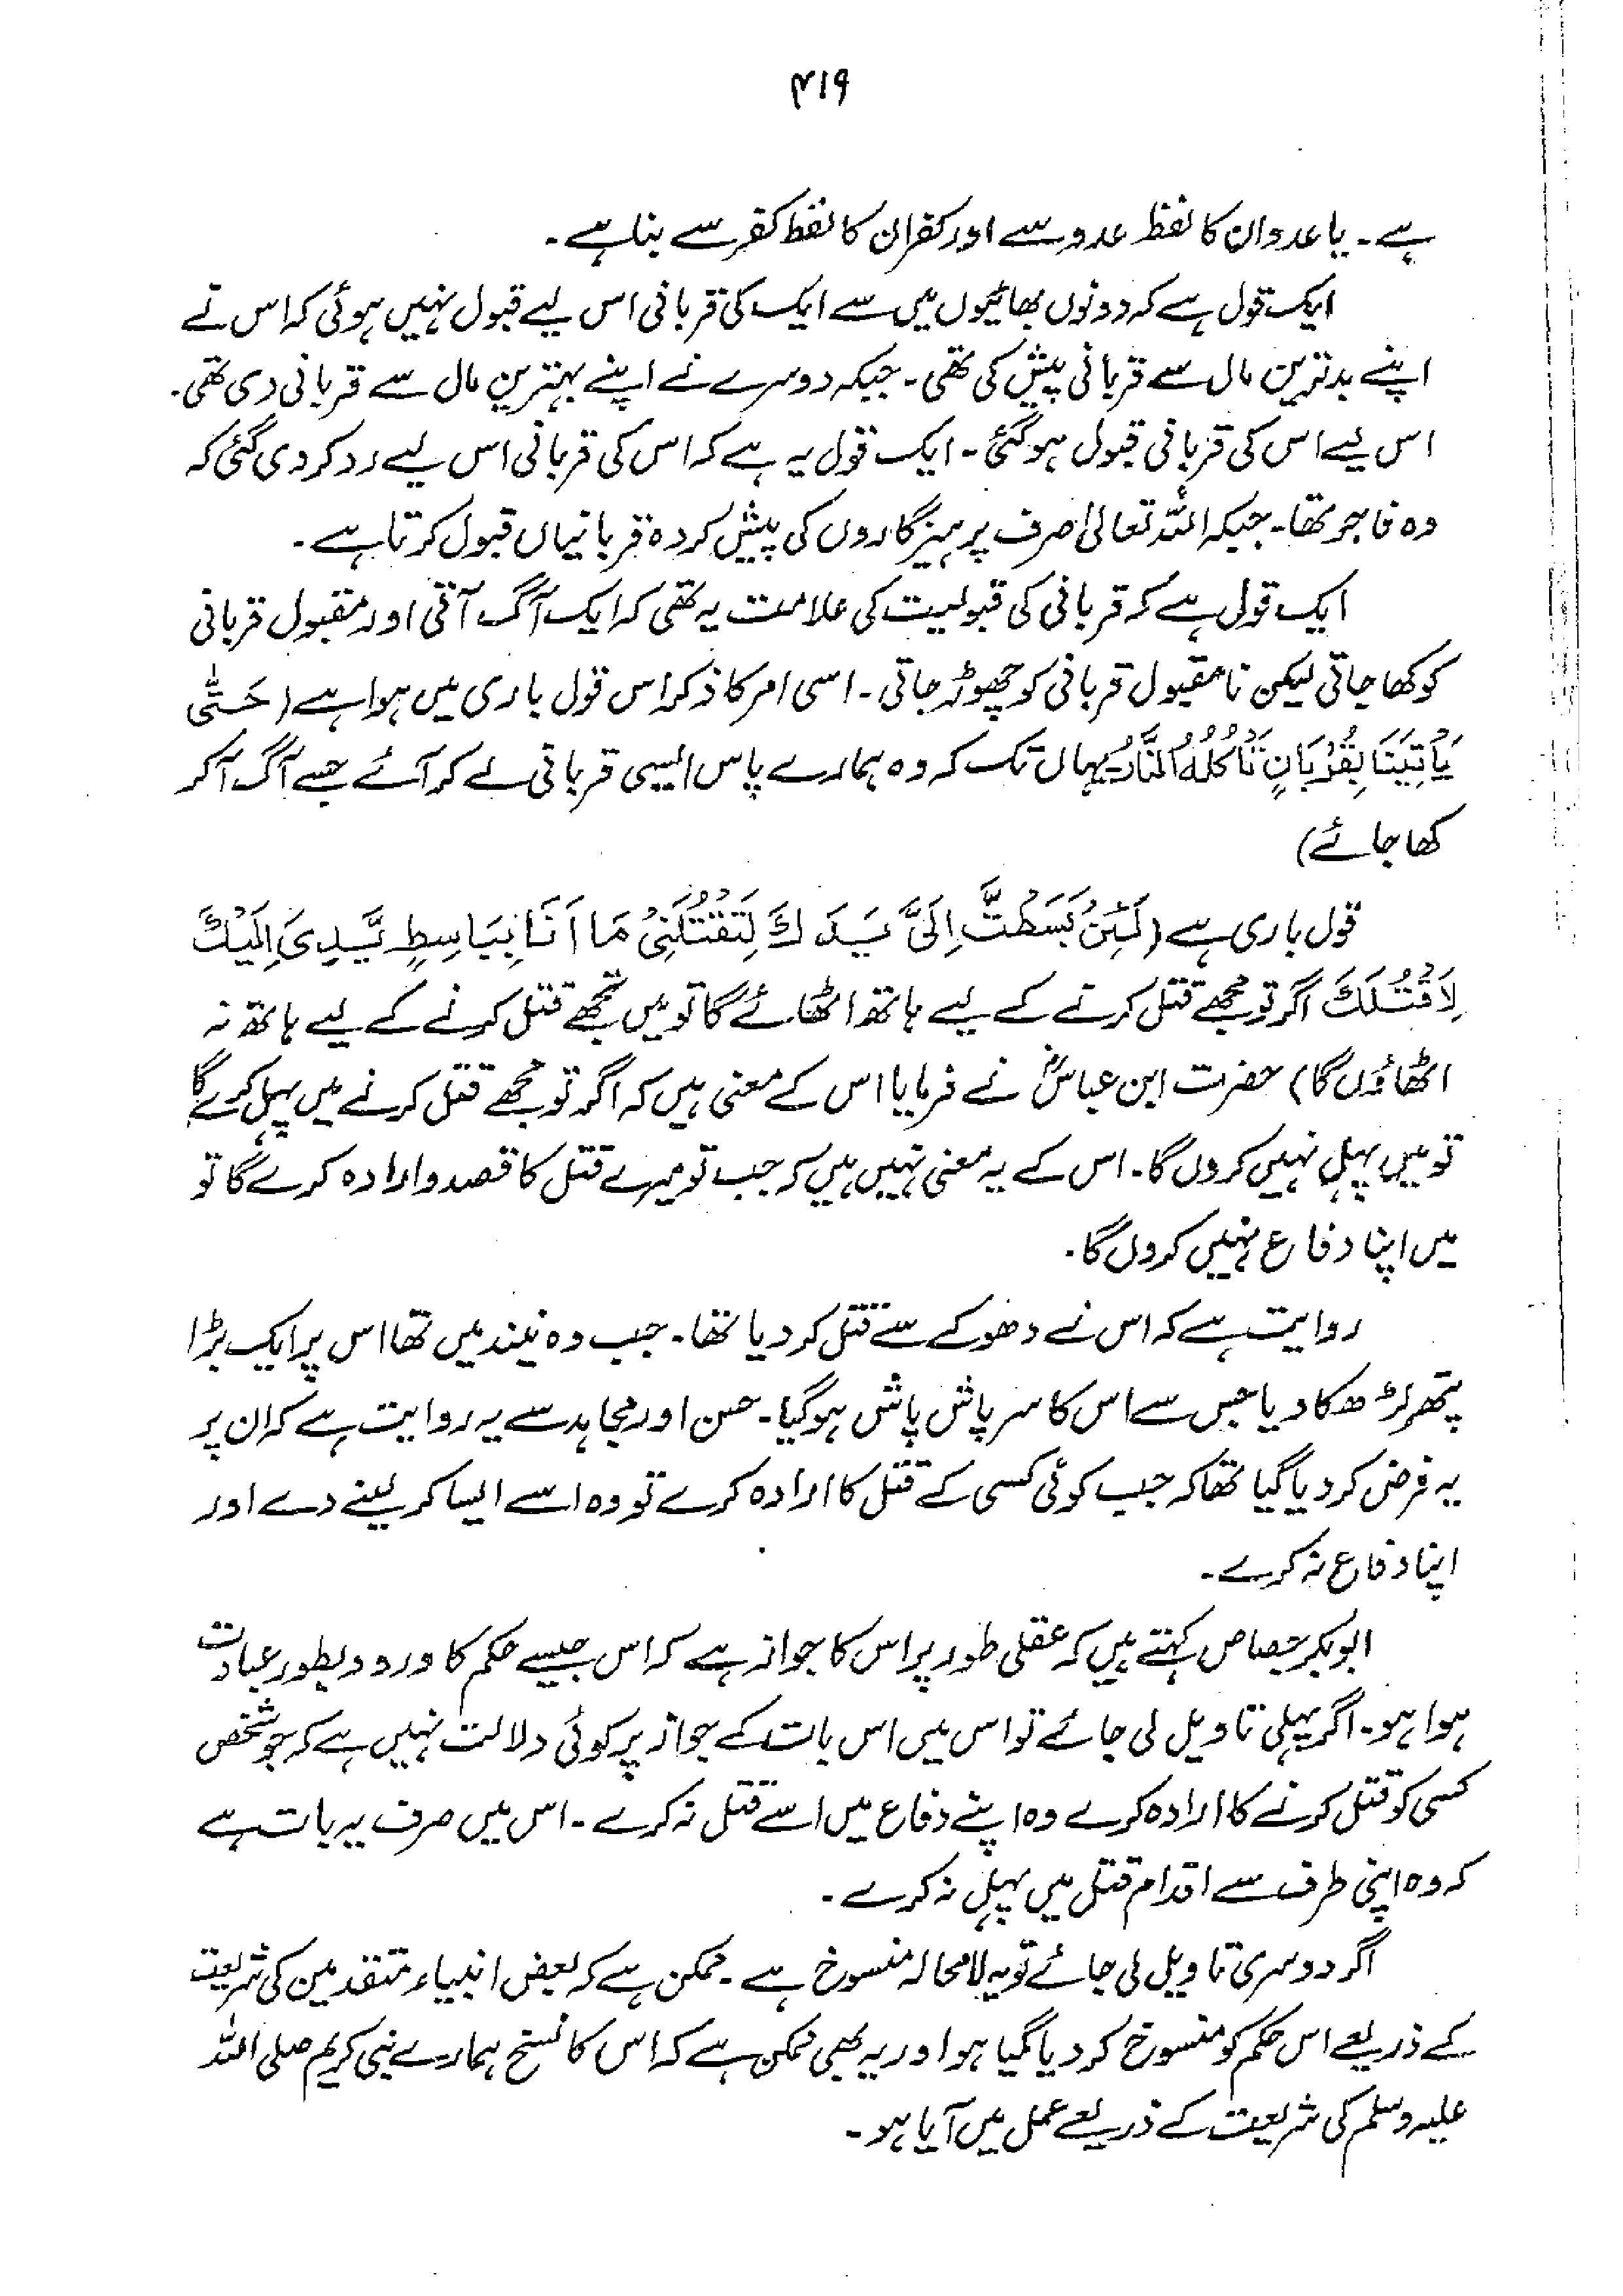 ۴۱۹
ہے۔ یا عدوان کا لفظ عدو سے اور کفران کا لفظ کفر سے بنا ہے۔
ایک قول ہے کہ دونوں بھائیوں میں سے ایک کی قربانی اس لیے قبول نہیں ہوئی کہ اس نے
اپنے بدترین مال سے قربانی پیش کی تھی۔ جبکہ دوسرے نے اپنے بہترین مال سے قربانی دی تھی۔
اس لیے اس کی قربانی قبول ہوگئی۔ ایک قول یہ ہے کہ اس کی قربانی اس لیے رد کر دی گئی کہ
وہ فاجر تھا۔ جبکہ اللہ تعالیٰ صرف پرہیزگاروں کی پیش کردہ قربانیاں قبول کرتا ہے۔
ایک قول ہے کہ قربانی کی قبولیت کی علامت یہ تھی کہ ایک آگ آتی اور مقبول قربانی
کو کھا جاتی لیکن نامقبول قربانی کو چھوڑ جاتی۔ اسی امر کا ذکر اس قول باری میں ہوا ہے (حَتّٰی
یَأْتِیَنَا بِقُرْبَانٍ تَأْکُلُہُ النَّارُ یہاں تک کہ وہ ہمارے پاس ایسی قربانی لے کر آئے جسے آگ آ کر
کھا جائے)
قول باری ہے (لَئِنْ بَسَطْتَّ اِلَیَّ یَدَكَ لِتَقْتُلَنِیْ مَا اَنَا بِبَاسِطٍ یَّدِیَ اِلَیْكَ
لِاَقْتُلَكَ اگر تو مجھے قتل کرنے کے لیے ہاتھ اٹھائے گا تو میں تجھے قتل کرنے کے لیے ہاتھ نہ
اٹھاؤں گا) حضرت ابن عباسؓ نے فرمایا اس کے معنی ہیں کہ اگر تو مجھے قتل کرنے میں پہل کرے گا
تو میں پہل نہیں کروں گا۔ اس کے یہ معنی نہیں ہیں کہ جب تو میرے قتل کا قصد و ارادہ کرے گا تو
میں اپنا دفاع نہیں کروں گا۔
روایت ہے کہ اس نے دھوکے سے قتل کر دیا تھا۔ جب وہ نیند میں تھا اس پر ایک بڑا
پتھر لڑھکا دیا جس سے اس کا سر پاش پاش ہوگیا۔ حسن اور مجاہد سے یہ روایت ہے کہ ان پر
یہ فرض کر دیا گیا تھا کہ جب کوئی کسی کے قتل کا ارادہ کرے تو وہ اسے ایسا کر لینے دے اور
اپنا دفاع نہ کرے۔
ابوبکر جصاص کہتے ہیں کہ عقلی طور پر اس کا جواز ہے کہ اس جیسے حکم کا ورود بطور عبادت
ہوا ہو۔ اگر پہلی تاویل لی جائے تو اس میں اس بات کے جواز پر کوئی دلالت نہیں ہے کہ جو شخص
کسی کو قتل کرنے کا ارادہ کرے وہ اپنے دفاع میں اسے قتل نہ کرے۔ اس میں صرف یہ بات ہے
کہ وہ اپنی طرف سے اقدام قتل میں پہل نہ کرے۔
اگر دوسری تاویل لی جائے تو یہ لامحالہ منسوخ ہے۔ ممکن ہے کہ بعض انبیاء متقدمین کی شریعت
کے ذریعے اس حکم کو منسوخ کر دیا گیا ہو اور یہ بھی ممکن ہے کہ اس کا نسخ ہمارے نبی کریم صلی اللہ
علیہ وسلم کی شریعت کے ذریعے عمل میں آیا ہو۔